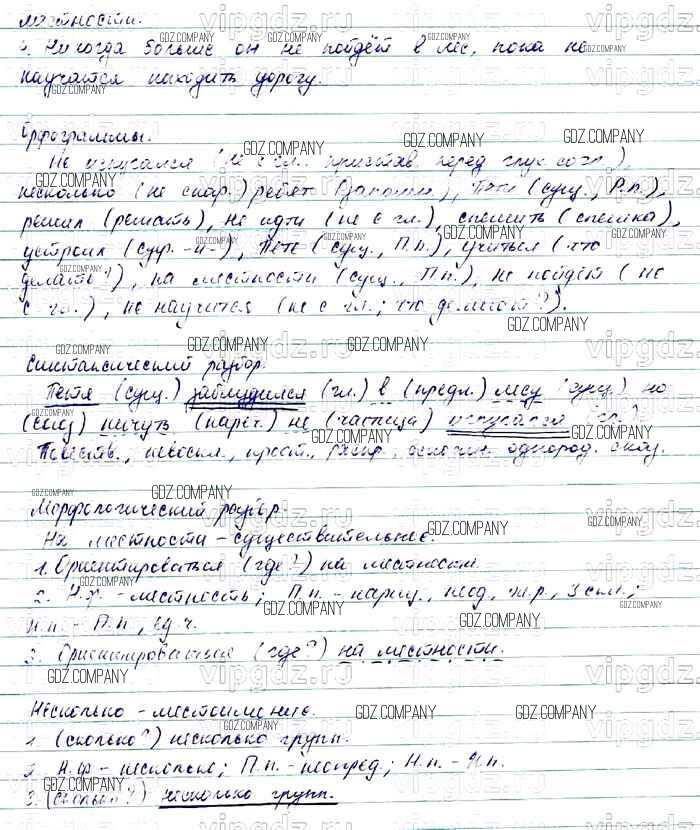 местности.
4. Никогда больше он не пойдёт в лес, пока не
научится находить дорогу.
Орфограммы.
Не испугался (не с гл., пристав. перед глух. согл.),
несколько (не скар.) ребят (запомн.), Пети (сущ., Р.п.),
решил (решать), не идти (не с гл.), спешить (спешка),
устроил (суф. -и-), Пете (сущ., П.п.), учиться (что
делать?), на местности (сущ., П.п.), не пойдёт (не
с гл.), не научится (не с гл.; что делают?).
Синтаксический разбор.
Петя (сущ.) заблудился (гл.) в (предл.) лесу (сущ.) но
(союз) ничуть (нареч.) не (частица) испугался (гл.)
Повеств., невоскл., прост., распр., осложн. однород. сказ.
Морфологический разбор.
На местности - существительное.
1. Ориентироваться (где?) на местности.
2. Н.ф. - местность; П.п. - нариц., неод., ж.р., 3 скл.;
Н.п. - П.п., ед.ч.
3. Ориентирование (где?) на местности.
Несколько - местоимение.
1. (сколько?) несколько групп.
2. Н.ф - несколько; П.п. - неопред.; Н.п. - И.п.
3. (сколько?) несколько групп.
vipgdz.ru
GDZ.COMPANY